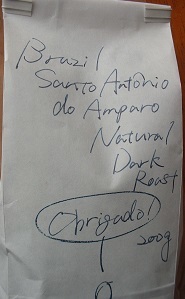 Brazil
Santo Antônio
do Amparo
Natural
Dark
Roast
Obrigado!
200g